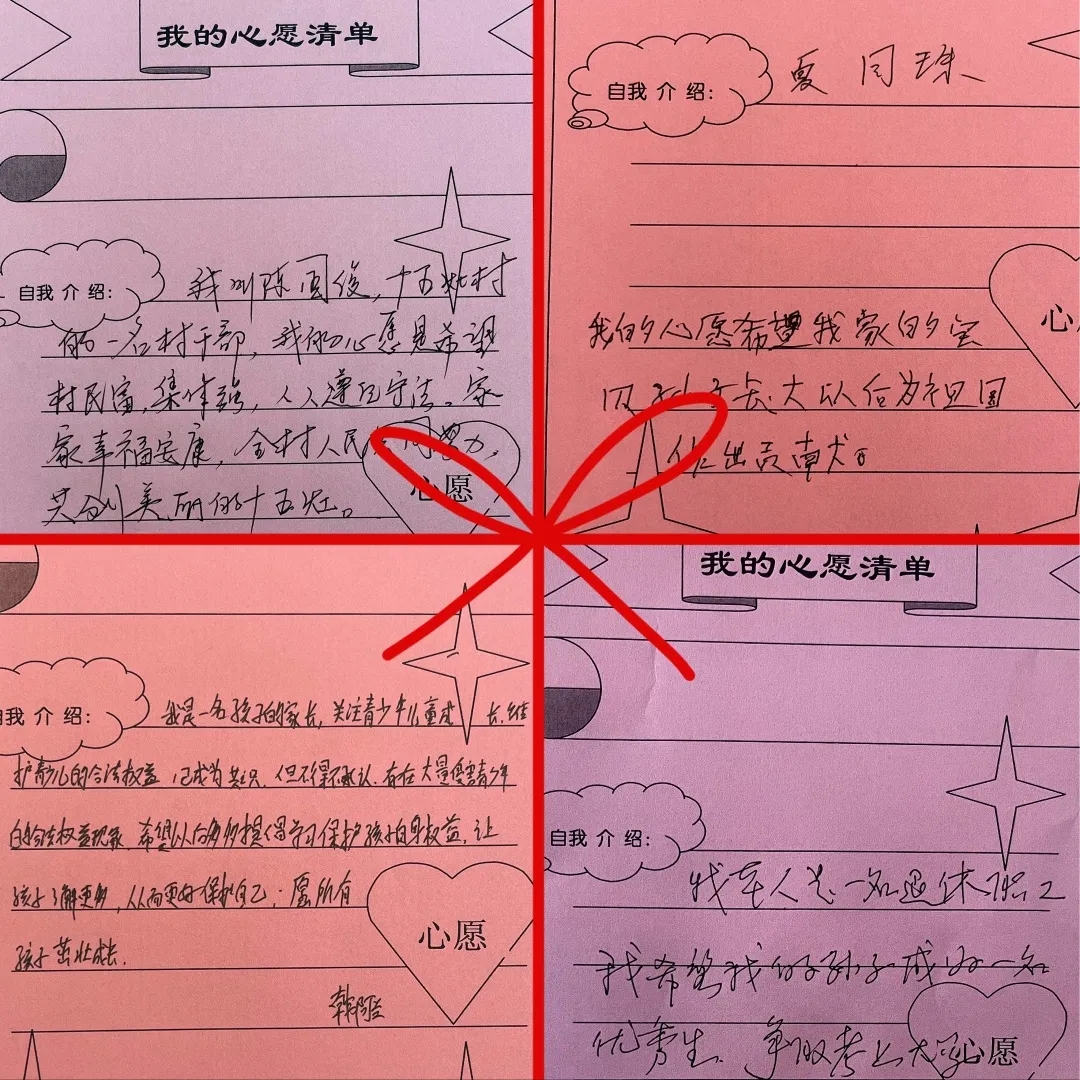 我的心愿清单
自我介绍：
我叫陈国俊，十五灶村
的一名村干部，我的心愿是希望
村民富，集体强，人人遵纪守法。家
家幸福安康，全村人民共同努力，
共创美丽的十五灶。
心愿
自我介绍：
夏同珠
我的心愿希望我家的宝
贝孙子长大以后为祖国
作出贡南犬。
心
自我介绍：
我是一名孩子的家长，关注青少年儿童成长，维
护青少儿的合法权益，已成为共识，但不得不承认，存在大量侵害青少年
的合法权益现象，希望以后多多提倡学习保护孩子自身权益，让
孩子了解更多，从而更好保护自己；愿所有
孩子茁壮成长．
心愿
我的心愿清单
自我介绍：
一名退休职工
我希望我的孙子成为一名
优秀生．争取考上大学
心愿